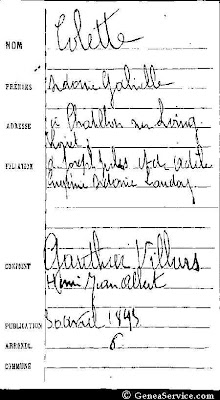 NOM
Colette
PRÉNOMS
Sidonie Gabrielle
ADRESSE
à Chatillon sur Loing
Loiret
FILIATION
de Joseph Jules et de Adèle
Eugénie Sidonie Landoy
CONJOINT
Gauthier Villars
Henri Jean Albert
PUBLICATION
30 avril 1893
ARRONDt.
6
COMMUNE
© GeneaService.com